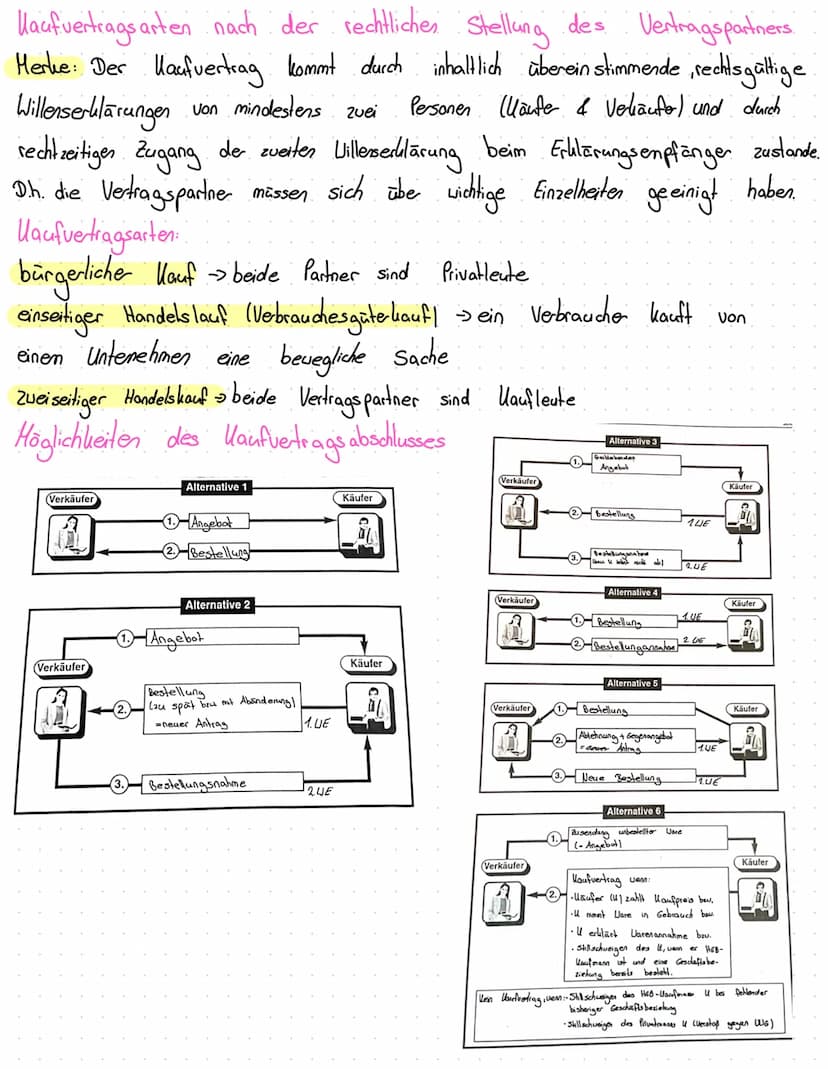 Kaufvertragsarten nach der rechtlichen Stellung des Vertragspartners
Merke: Der Kaufvertrag kommt durch inhaltlich übereinstimmende, rechtsgültige
Willenserklärungen von mindestens zwei Personen (Käufer & Verkäufer) und durch
rechtzeitigen Zugang der zweiten Willenserklärung beim Erklärungsempfänger zustande.
D.h. die Vertragspartner müssen sich über wichtige Einzelheiten geeinigt haben.
Kaufvertragsarten:
bürgerlicher Kauf → beide Partner sind Privatleute
einseitiger Handelskauf (Verbrauchesgüterkauf) → ein Verbraucher kauft von
einem Unternehmen eine bewegliche Sache
zweiseitiger Handelskauf → beide Vertragspartner sind Kaufleute
Möglichkeiten des Kaufvertragsabschlusses
Alternative 1
Verkäufer
Käufer
1. Angebot
2. Bestellung
Alternative 2
1. Angebot
Verkäufer
Käufer
2. Bestellung
(zu spät bzw mit Abänderung)
=neuer Antrag
1.WE
3. Bestellungsnahme
2.WE
Alternative 3
1.
Angebot
Verkäufer
Käufer
2. Bestellung
1.WE
3. Bestellungsannahme
2.WE
Alternative 4
Verkäufer
Käufer
1. Bestellung
1.WE
2. Bestellungannahme
2.WE
Alternative 5
Verkäufer
Käufer
1. Bestellung
2. Ablehnung + Gegenangebot
Antrag
1.WE
3. Neue Bestellung
2.WE
Alternative 6
1. Zusendung unbestellter Ware
(= Angebot)
Verkäufer
Käufer
2. Kaufvertrag wenn:
·Käufer (K) zahlt Kaufpreis bzw.
·K nimmt Ware in Gebrauch bzw.
·K erklärt Warenannahme bzw.
·Stillschweigen des K, wenn er HGB-
Kaufmann ist und eine Geschäftsbe-
ziehung bereits besteht.
Kein Kaufvertrag, wenn: -Stillschweigen des HGB-Kaufmanns K bei fehlender
bisheriger Geschäftsbeziehung
·Stillschweigen des Privatmanns K (Verstoß gegen UWG)